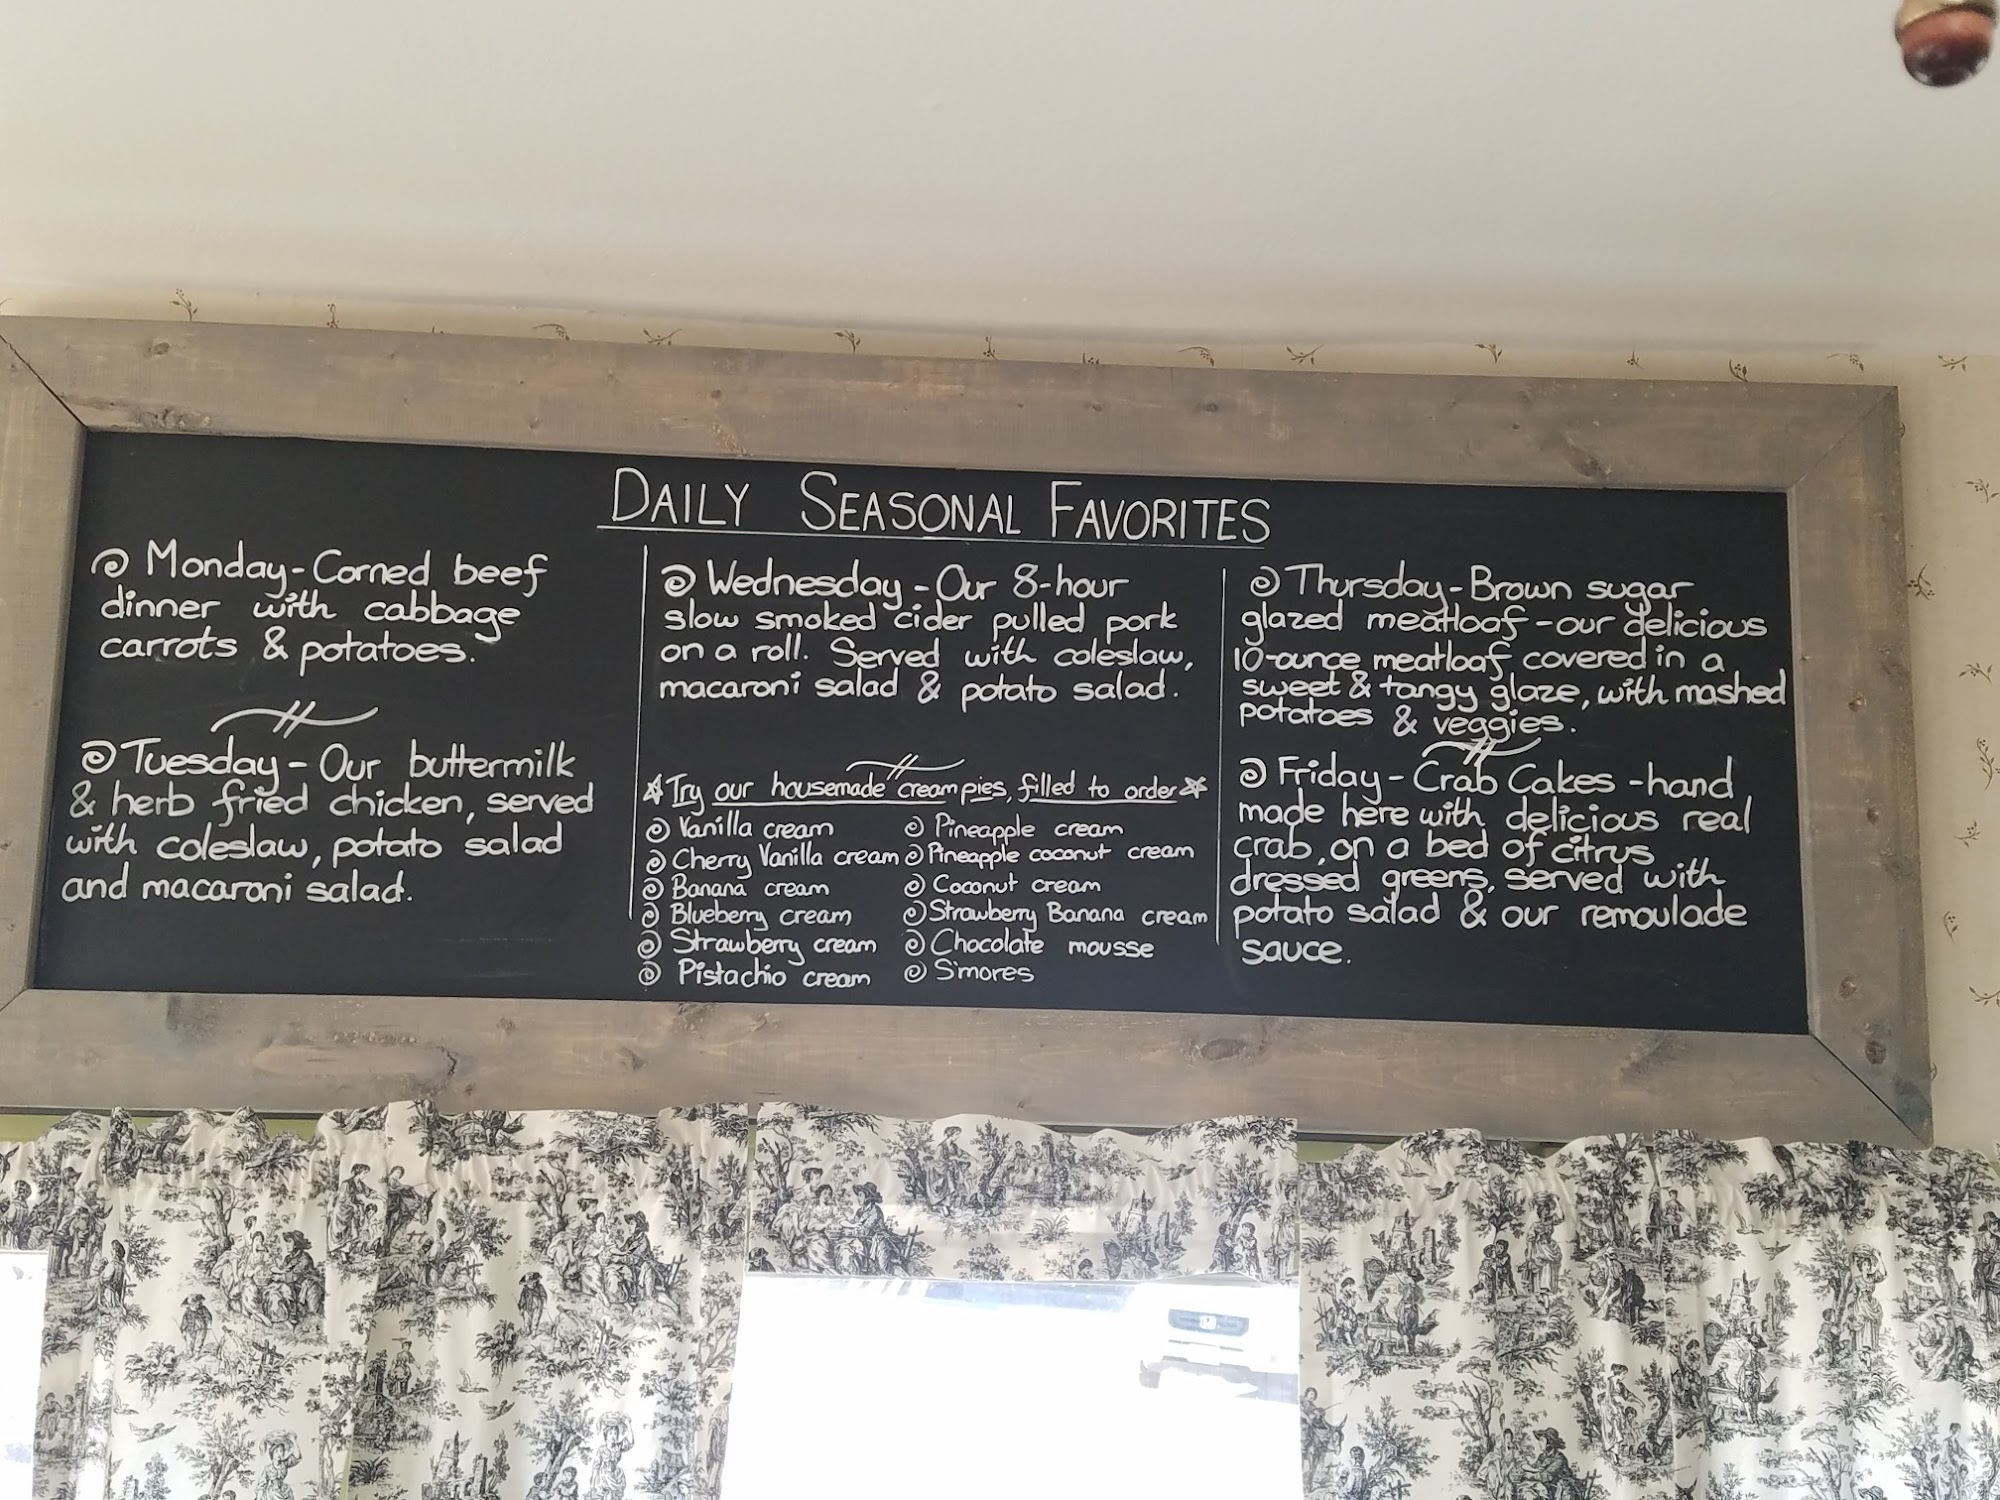 DAILY SEASONAL FAVORITES
Monday-Corned beef
dinner with cabbage
carrots & potatoes.
Tuesday-Our buttermilk
& herb fried chicken, served
with coleslaw, potato salad
and macaroni salad.
Wednesday-Our 8-hour
slow smoked cider pulled pork
on a roll. Served with coleslaw,
macaroni salad & potato salad.
Try our housemade cream pies, filled to order
Vanilla cream
Cherry Vanilla cream
Banana cream
Blueberry cream
Strawberry cream
Pistachio cream
Pineapple cream
Pineapple coconut cream
Coconut cream
Strawberry Banana cream
Chocolate mousse
S'mores
Thursday-Brown sugar
glazed meatloaf-our delicious
10-ounce meatloaf covered in a
sweet & tangy glaze, with mashed
potatoes & veggies.
Friday-Crab Cakes-hand
made here with delicious real
crab, on a bed of citrus
dressed greens, served with
potato salad & our remoulade
sauce.